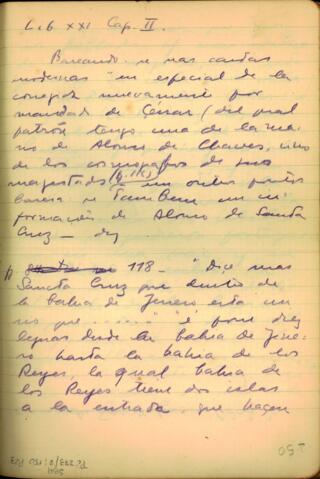 Lib XXI Cap. II.
Baseando-se nas cartas
modernas "en especial de la
corregida nuevamente por
mandado de César (del qual
patrón tengo una de la ma-
no de Alonso de Chaves, uno
de los cosmografos de sus
magestades) en outros pontos
baseia-se tambem en in
formación de Alonso de Sancta
Cruz —
p 118 - "Dice mas
Sancta Cruz que dentro de
la bahia de Jenero esta un
rio que ....." é pone diez
leguas desde la bahia de Jene-
ro hasta la bahia de los
Reyes, la qual bahia de
los Reyes tiene dos islas
a la entrada, que haçen
150